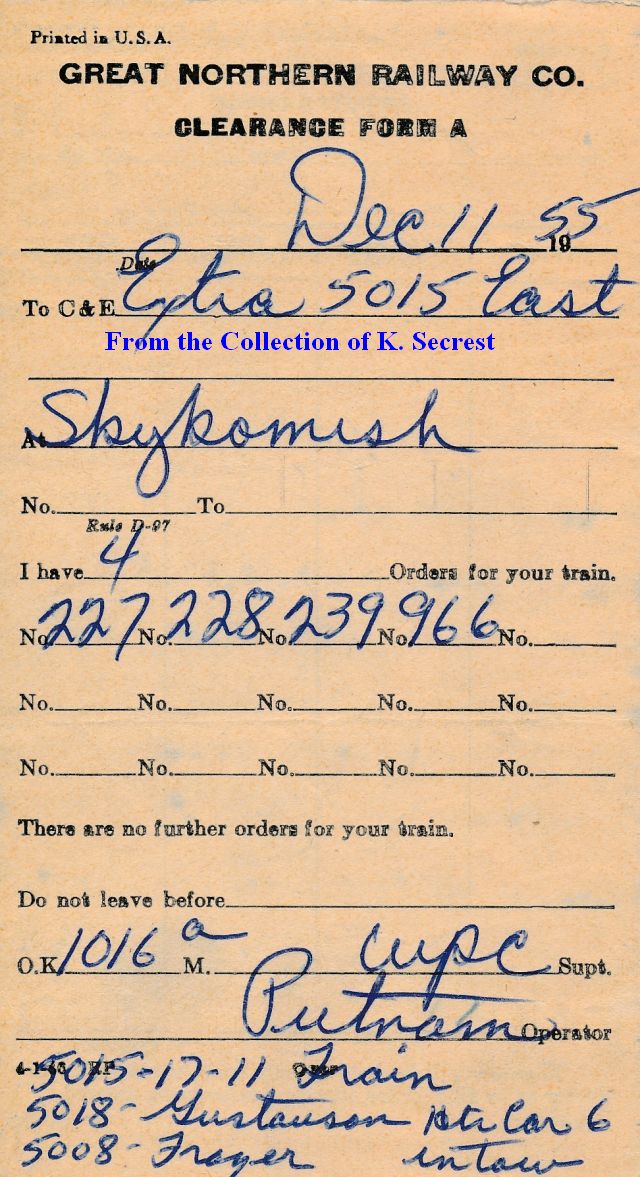 Printed in U.S.A.
GREAT NORTHERN RAILWAY CO.
CLEARANCE FORM A
Dec 11 1955
Date
To C & E Extra 5015 East
From the Collection of K. Secrest
At Skykomish
No. To
Rule D-97
I have 4 Orders for your train.
No. 227 No. 228 No. 239 No. 966 No.
No. No. No. No. No.
No. No. No. No. No.
There are no further orders for your train.
Do not leave before
O.K. 1016 a M. WPC Supt.
Putnam Operator
5015-17-11 Train
5018- Gustauson Car 6
5008- Frayer in tow